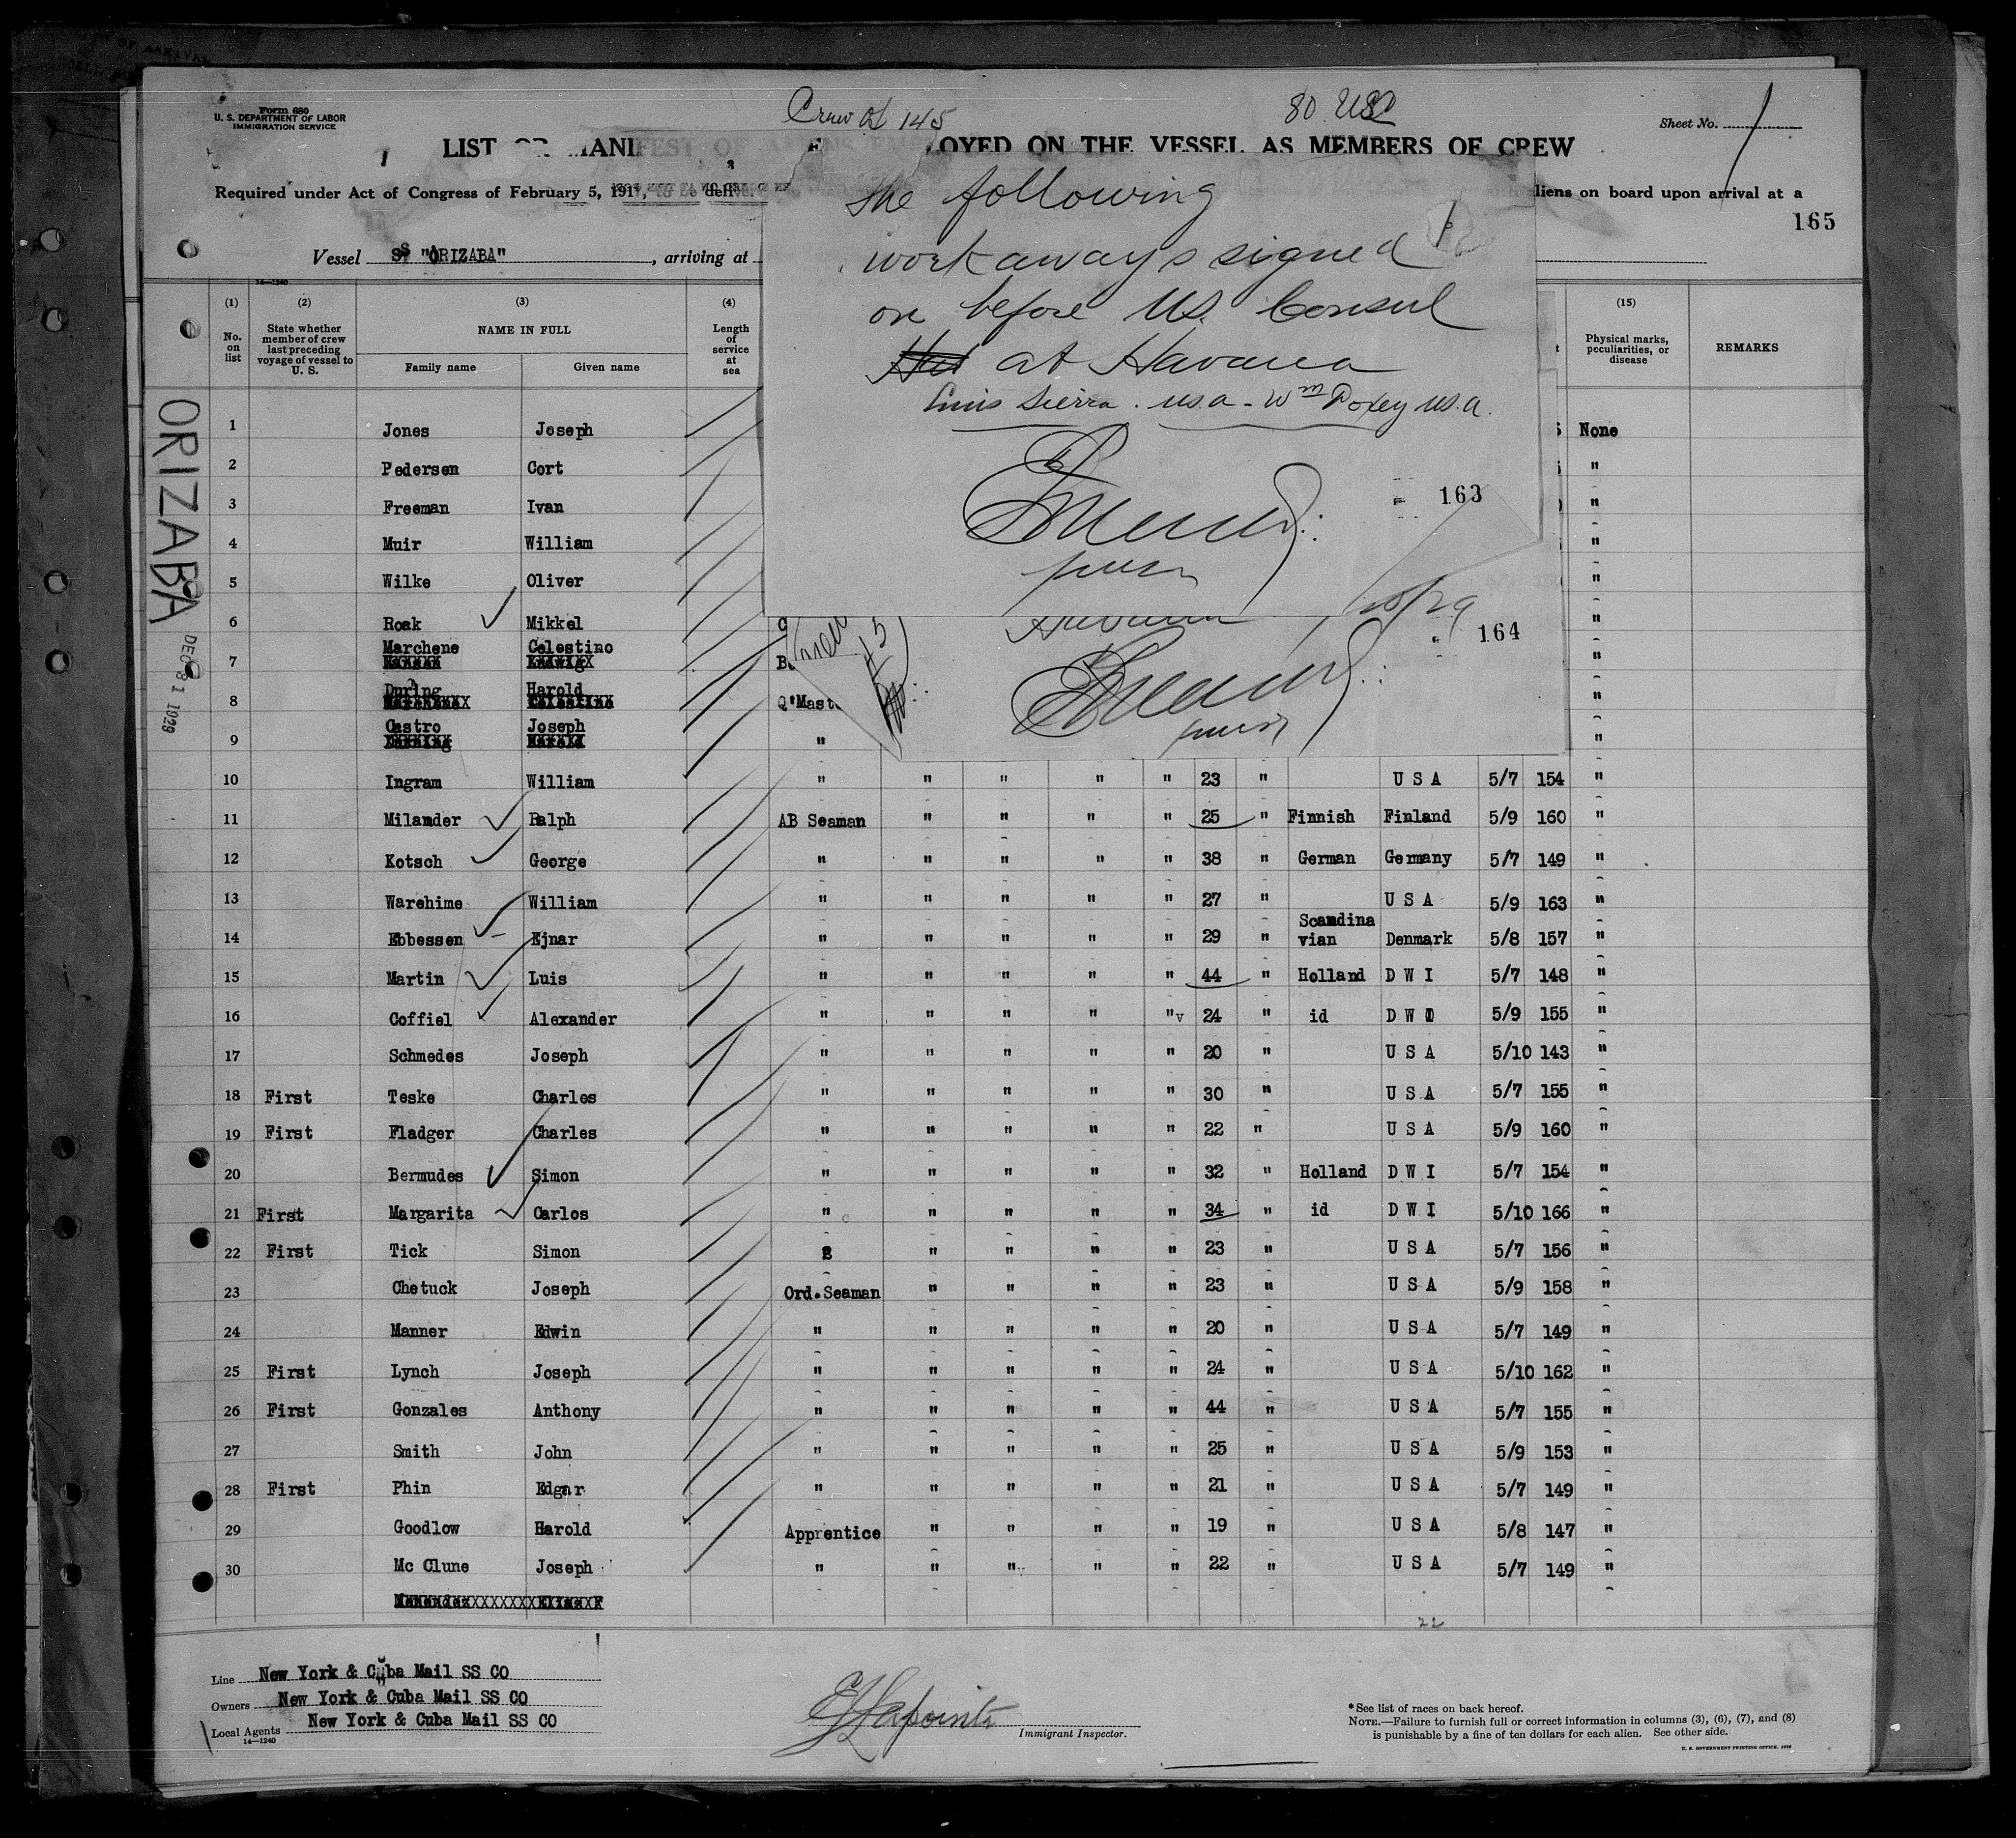 Form 680
U. S. DEPARTMENT OF LABOR
IMMIGRATION SERVICE
Crew 145
80 USC
Sheet No.
LIST OR MANIFEST OF ALIENS EMPLOYED ON THE VESSEL AS MEMBERS OF CREW
Required under Act of Congress of February 5, 1917,
aliens on board upon arrival at a
165
Vessel SS "ORIZABA" , arriving at
The following
workaways signed
on before U.S. Consul
at Havana
Luis Sierra . usa - Wm Doxey U.S.A.
163
Havana
164
ORIZABA
DEC 31 1929
14—1240
(1) (2) (3) (4) (15)
No. on list
State whether member of crew last preceding voyage of vessel to U. S.
NAME IN FULL
Family name Given name
Length of service at sea
Physical marks, peculiarities, or disease
REMARKS
1 Jones Joseph None
2 Pedersen Cort "
3 Freeman Ivan "
4 Muir William "
5 Wilke Oliver "
6 Roak Mikkel "
7 Marchene Celestino "
8 During Harold Q'Mast "
9 Castro Joseph " "
10 Ingram William " " " " " 23 " U S A 5/7 154 "
11 Milander Ralph AB Seaman " " " " 25 " Finnish Finland 5/9 160 "
12 Kotsch George " " " " " 38 " German Germany 5/7 149 "
13 Warehime William " " " " " 27 " U S A 5/9 163 "
14 Ebbessen Ejnar " " " " " 29 " Scandina vian Denmark 5/8 157 "
15 Martin Luis " " " " " 44 " Holland D W I 5/7 148 "
16 Coffiel Alexander " " " " " 24 " id D W I 5/9 155 "
17 Schmedes Joseph " " " " " 20 " U S A 5/10 143 "
18 First Teske Charles " " " " " 30 " U S A 5/7 155 "
19 First Fladger Charles " " " " " 22 " U S A 5/9 160 "
20 Bermudes Simon " " " " " 32 " Holland D W I 5/7 154 "
21 First Margarita Carlos " " " " " 34 " id D W I 5/10 166 "
22 First Tick Simon " " " " 23 " U S A 5/7 156 "
23 Chetuck Joseph Ord.Seaman " " " " 23 " U S A 5/9 158 "
24 Manner Edwin " " " " " 20 " U S A 5/7 149 "
25 First Lynch Joseph " " " " " 24 " U S A 5/10 162 "
26 First Gonzales Anthony " " " " " 44 " U S A 5/7 155 "
27 Smith John " " " " " 25 " U S A 5/9 153 "
28 First Phin Edgar " " " " " 21 " U S A 5/7 149 "
29 Goodlow Harold Apprentice " " " " 19 " U S A 5/8 147 "
30 Mc Clune Joseph " " " " " 22 " U S A 5/7 149 "
22
Line New York & Cuba Mail SS CO
Owners New York & Cuba Mail SS CO
Local Agents New York & Cuba Mail SS CO
14—1240
E Lapointe
Immigrant Inspector.
* See list of races on back hereof.
NOTE.—Failure to furnish full or correct information in columns (3), (6), (7), and (8)
is punishable by a fine of ten dollars for each alien. See other side.
U. S. GOVERNMENT PRINTING OFFICE.